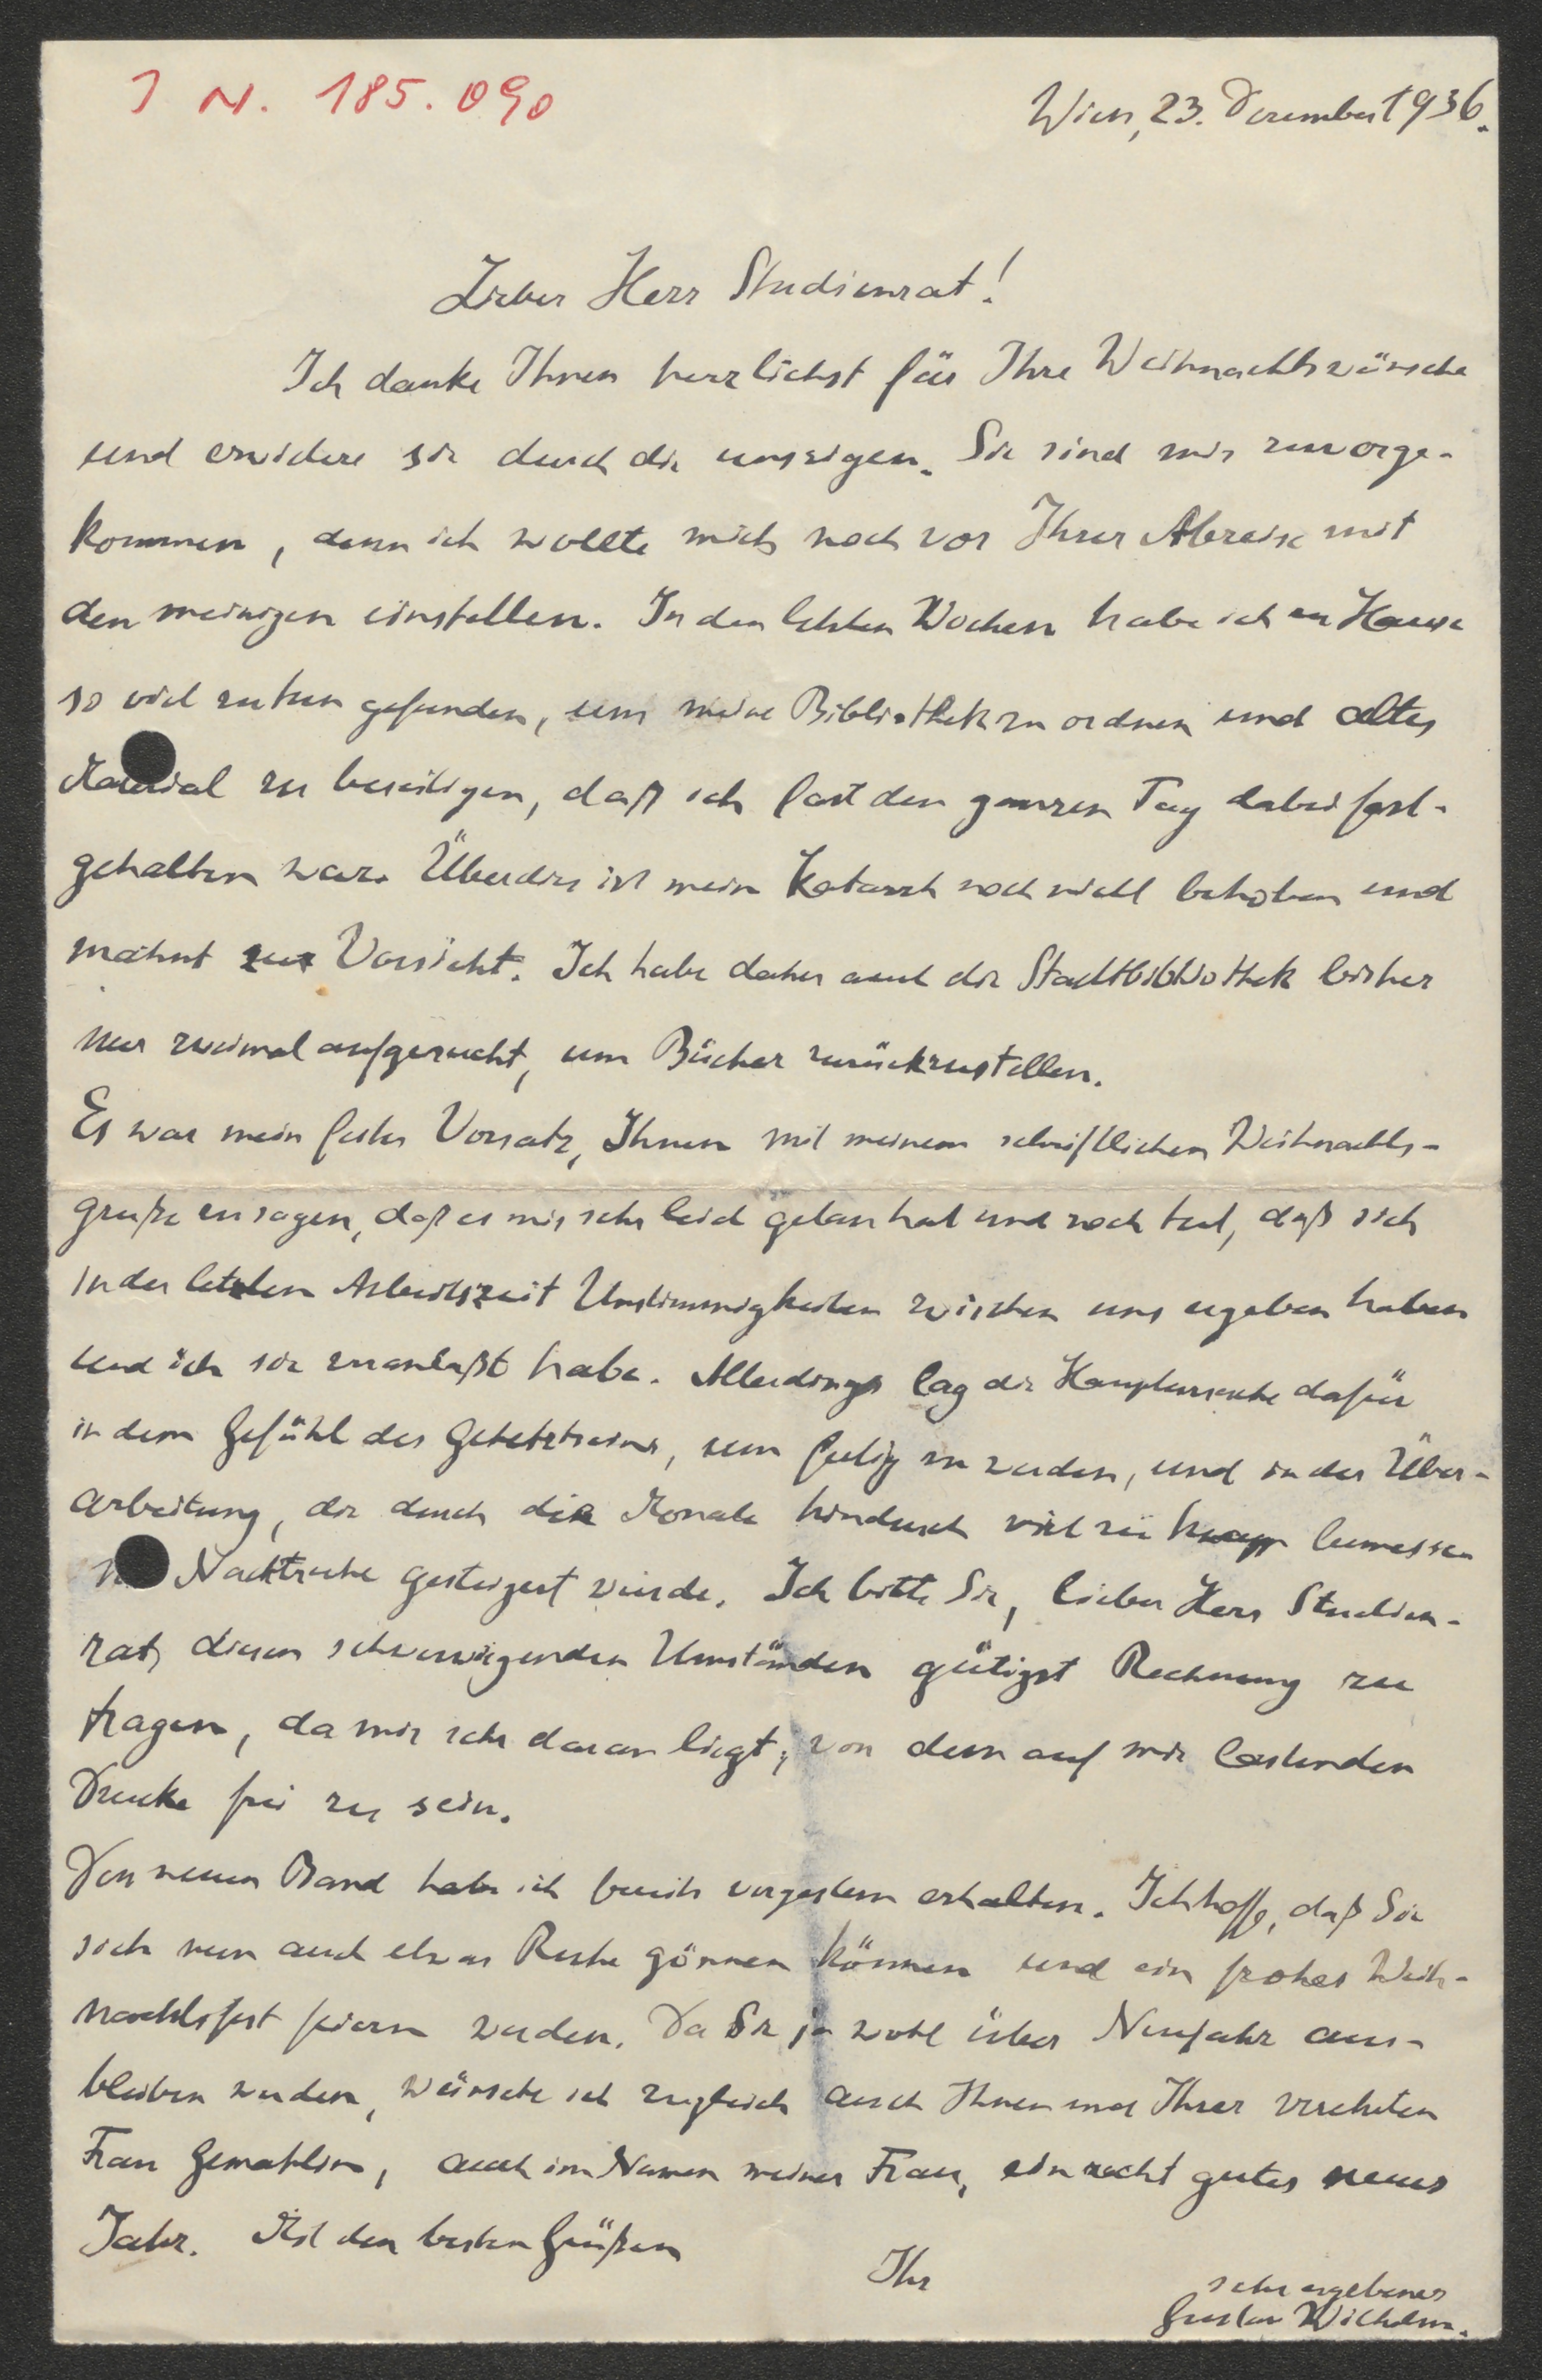 I N. 185.090
Wien, 23. Dezember 1936.
Lieber Herr Studienrat!
Ich danke Ihnen herzlichst für Ihre Weihnachtswünsche
und erwidere sie durch die unsrigen. Sie sind mir zuvorge-
kommen, denn ich wollte mich noch vor Ihrer Abreise mit
den meinigen einstellen. In den letzten Wochen habe ich zu Hause
so viel zu tun gefunden, um meine Bibliothek zu ordnen und altes
Material zu beseitigen, daß ich fast den ganzen Tag dabei fest-
gehalten war. Überdies ist mein Katarrh noch nicht behoben und
mahnt zur Vorsicht. Ich habe daher auch die Stadtbibliothek bisher
nur zweimal aufgesucht, um Bücher zurückzustellen.
Es war mein fester Vorsatz, Ihnen mit meinem schriftlichen Weihnachts-
gruße zu sagen, daß es mir sehr leid getan hat und noch tut, daß sich
in der letzten Arbeitszeit Unstimmigkeiten zwischen uns ergeben haben
und ich sie veranlaßt habe. Allerdings lag die Hauptursache dafür
in dem Gefühl des Gehetztseins, um fertig zu werden, und in der Über-
arbeitung, die durch die Monate hindurch viel zu knapp bemessene
Nachtruhe gesteigert wurde. Ich bitte Sie, lieber Herr Studien-
rat, diesen schwerwiegenden Umständen gütigst Rechnung zu
tragen, da mir sehr daran liegt, von dem auf mir lastenden
Drucke frei zu sein.
Den neuen Band habe ich bereits vorgestern erhalten. Ich hoffe, daß Sie
sich nun auch etwas Ruhe gönnen können und ein frohes Weih-
nachtsfest feiern werden. Da Sie ja wohl über Neujahr aus-
bleiben werden, wünsche ich zugleich auch Ihnen und Ihrer verehrten
Frau Gemahlin, auch im Namen meiner Frau, ein recht gutes neues
Jahr. Mit den besten Grüßen
Ihr
sehr ergebener
Gustav Wilhelm.